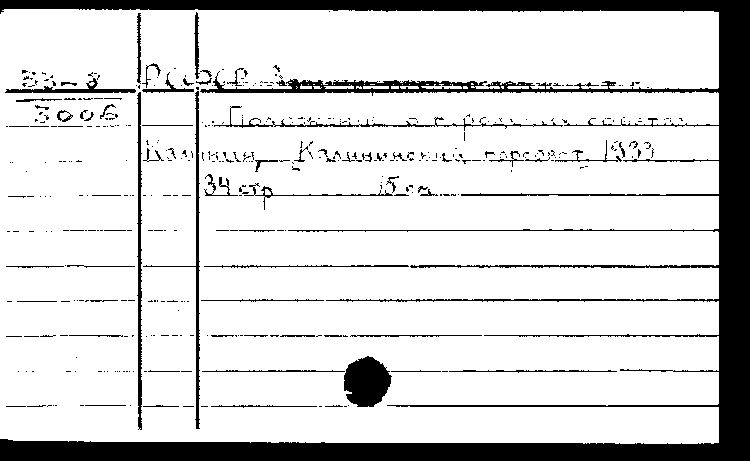 33-8 РСФСР Законы, постановления и т.п.
3006 Положение о городских советах.
Калинин, Калининский горсовет, 1933
34 стр 15 см